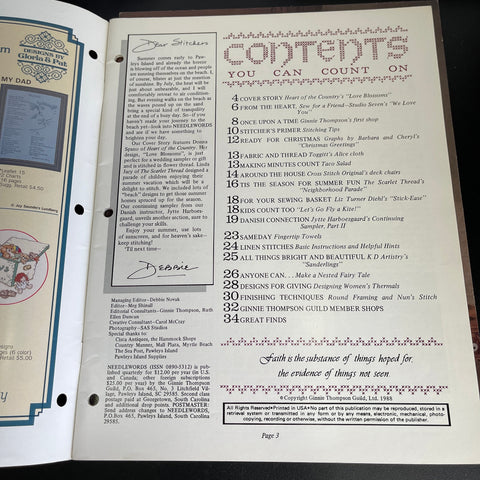 DESIGNS BY
Gloria & Pat
MY DAD
Dear Stitchers
Summer comes early to Paw-
leys Island and already the breeze
is blowing off of the ocean and people
are sunning themselves on the beach. I,
of course, blister at just the mention
of sunshine. By July, the heat will be
just about unbearable, and I will
comfortably retreat to air condition-
ing. But evening walks on the beach as
the waves pound up on the sand
bring a special kind of tranquility
at the end of a busy day. So-if you
haven't made your journey to the
beach yet-look into NEEDLEWORDS
and see if we have something to
brighten your day.
Our Cover Story features Donna
Spears of Heart of the Country. Her
design, "Love Blossoms", is just
perfect for a wedding sampler or gift
and is stitched in flower thread. Linda
Jary of The Scarlet Thread designed a
parade of children enjoying their
summer vacation which will be a
delight to stitch. We included lots of
"beach" designs to get those summer
homes spruced up for the season.
Our continuing sampler from our
Danish instructor, Jytte Harboes-
gaard, unveils another section, sure to
challenge your skills.
Enjoy your summer, use lots
of sunscreen, and for heaven's sake-
keep stitching!
'Til next time-
DEBBIE
Managing Editor-Debbie Novak
Editor-Meg Shinall
Editorial Consultants-Ginnie Thompson, Ruth
Ellen Duncan
Creative Consultant-Carol McCray
Photography-SAS Studios
Special thanks to:
Chica Antiques, the Hammock Shops
Country Manner, Mall Plaza, Myrtle Beach
The Sea Post, Pawleys Island
Pawleys Island Supplies
NEEDLEWORDS (ISSN 0890-5312) is pub-
lished quarterly for $12.00 per year (in U.S.
and Canada; other foreign subscriptions
$25.00 per year) by the Ginnie Thompson
Guild, P.O. Box 465, No. 3 Litchfield Vil-
lage, Pawleys Island, SC 29585. Second class
postage paid at Georgetown, South Carolina
and additional drop points. POSTMASTER:
Send address changes to NEEDLEWORDS,
P.O. Box 465, Pawleys Island, South Carolina
29585.
CONTENTS
YOU CAN COUNT ON
4 COVER STORY Heart of the Country's "Love Blossoms"
6 FROM THE HEART, Sew for a Friend-Studio Seven's "We Love
You"
8 ONCE UPON A TIME Ginnie Thompson's first shop
10 STITCHER'S PRIMER Stitching Tips
12 READY FOR CHRISTMAS Graphs by Barbara and Cheryl's
"Christmas Greetings"
13 FABRIC AND THREAD Toggitt's Alice cloth
13 MAKING MINUTES COUNT Taco Salad
14 AROUND THE HOUSE Cross Stitch Original's deck chairs
16 TIS THE SEASON FOR SUMMER FUN The Scarlet Thread's
"Neighborhood Parade"
18 FOR YOUR SEWING BASKET Liz Turner Diehl's "Stick-Ease"
18 KIDS COUNT TOO "Let's Go Fly a Kite!"
19 DANISH CONNECTION Jytte Harboesgaard's Continuing
Sampler, Part II
23 SAMEDAY Fingertip Towels
24 LINEN STITCHES Basic Instructions and Helpful Hints
25 ALL THINGS BRIGHT AND BEAUTIFUL K D Artistry's
"Sanderlings"
26 ANYONE CAN. . . Make a Nested Fairy Tale
28 DESIGNS FOR GIVING Designing Women's Thermals
30 FINISHING TECHNIQUES Round Framing and Nun's Stitch
32 GINNIE THOMPSON GUILD MEMBER SHOPS
34 GREAT FINDS
Faith is the substance of things hoped for,
the evidence of things not seen.
© Copyright Ginnie Thompson Guild, Ltd. 1988
All Rights Reserved•Printed in USA•No part of this publication may be reproduced, stored in a
retrieval system or transmitted in any form or by any means, electronic, mechanical, photo-
copying, recording or otherwise, without the written permission of the publisher.
Page 3